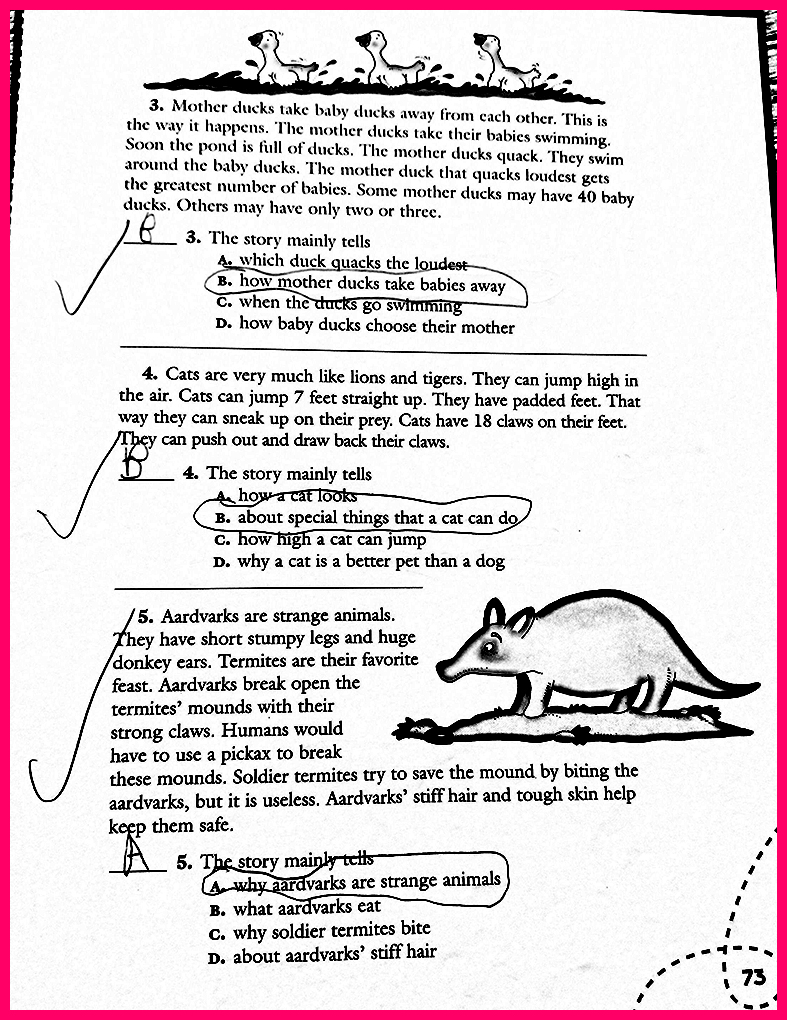 3. Mother ducks take baby ducks away from each other. This is
the way it happens. The mother ducks take their babies swimming.
Soon the pond is full of ducks. The mother ducks quack. They swim
around the baby ducks. The mother duck that quacks loudest gets
the greatest number of babies. Some mother ducks may have 40 baby
ducks. Others may have only two or three.
B 3. The story mainly tells
A. which duck quacks the loudest
B. how mother ducks take babies away
C. when the ducks go swimming
D. how baby ducks choose their mother
4. Cats are very much like lions and tigers. They can jump high in
the air. Cats can jump 7 feet straight up. They have padded feet. That
way they can sneak up on their prey. Cats have 18 claws on their feet.
They can push out and draw back their claws.
B 4. The story mainly tells
A. how a cat looks
B. about special things that a cat can do
C. how high a cat can jump
D. why a cat is a better pet than a dog
5. Aardvarks are strange animals.
They have short stumpy legs and huge
donkey ears. Termites are their favorite
feast. Aardvarks break open the
termites' mounds with their
strong claws. Humans would
have to use a pickax to break
these mounds. Soldier termites try to save the mound by biting the
aardvarks, but it is useless. Aardvarks' stiff hair and tough skin help
keep them safe.
A 5. The story mainly tells
A. why aardvarks are strange animals
B. what aardvarks eat
C. why soldier termites bite
D. about aardvarks' stiff hair
73